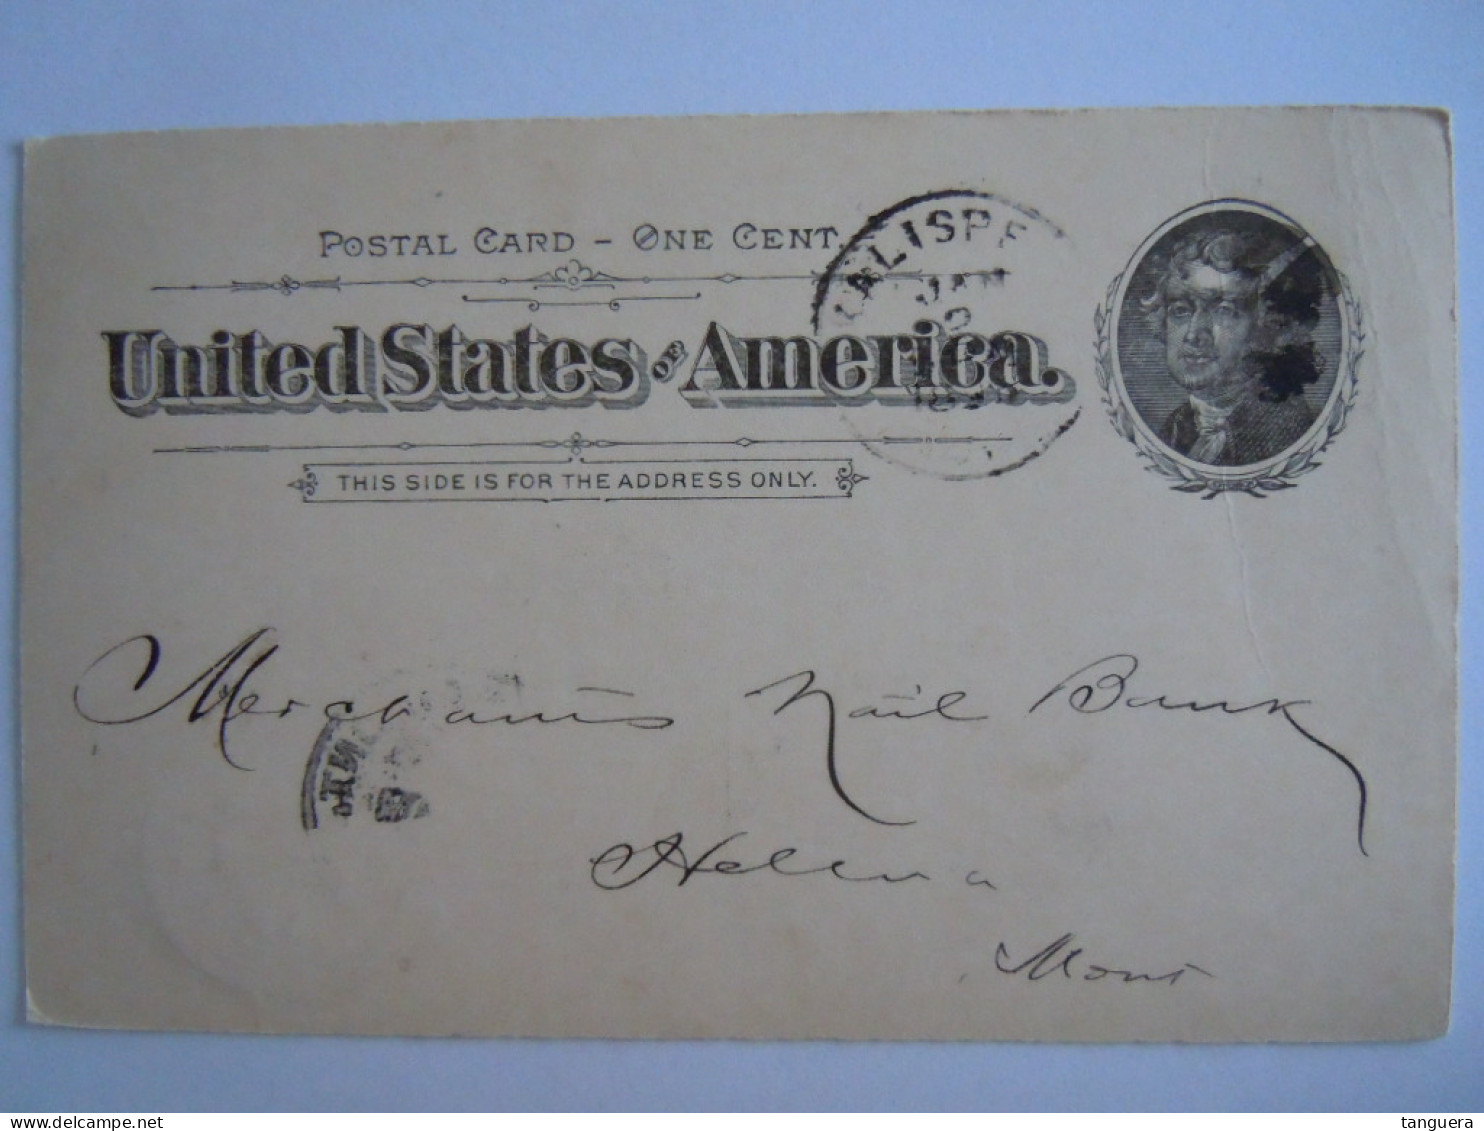 POSTAL CARD - ONE CENT.
United States OF America.
THIS SIDE IS FOR THE ADDRESS ONLY.
KALISPE
JAN
Merchants Nail Bank
Helena
Mont
tanguera